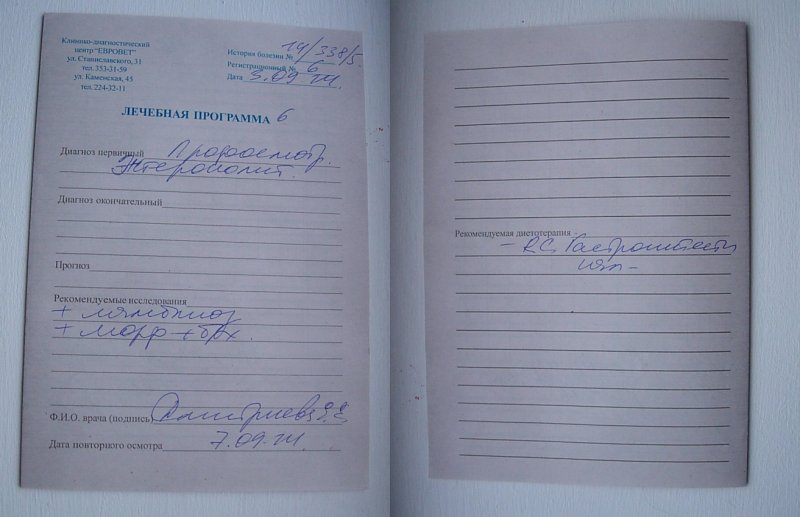 Клинико-диагностический
центр "ЕВРОВЕТ"
ул. Станиславского, 31
тел. 353-31-59
ул. Каменская, 45
тел. 224-32-11
История болезни № 14/338/5
Регистрационный № 6
Дата 3.09.14.
ЛЕЧЕБНАЯ ПРОГРАММА 6
Диагноз первичный Профосмотр.
Энтероколит.
Диагноз окончательный
Прогноз
Рекомендуемые исследования
+ лямблиоз
+ морф + б/х.
Ф.И.О. врача (подпись) Дмитриева
Дата повторного осмотра 7.09.14
Рекомендуемая диетотерапия -
- RC Гастроинтести